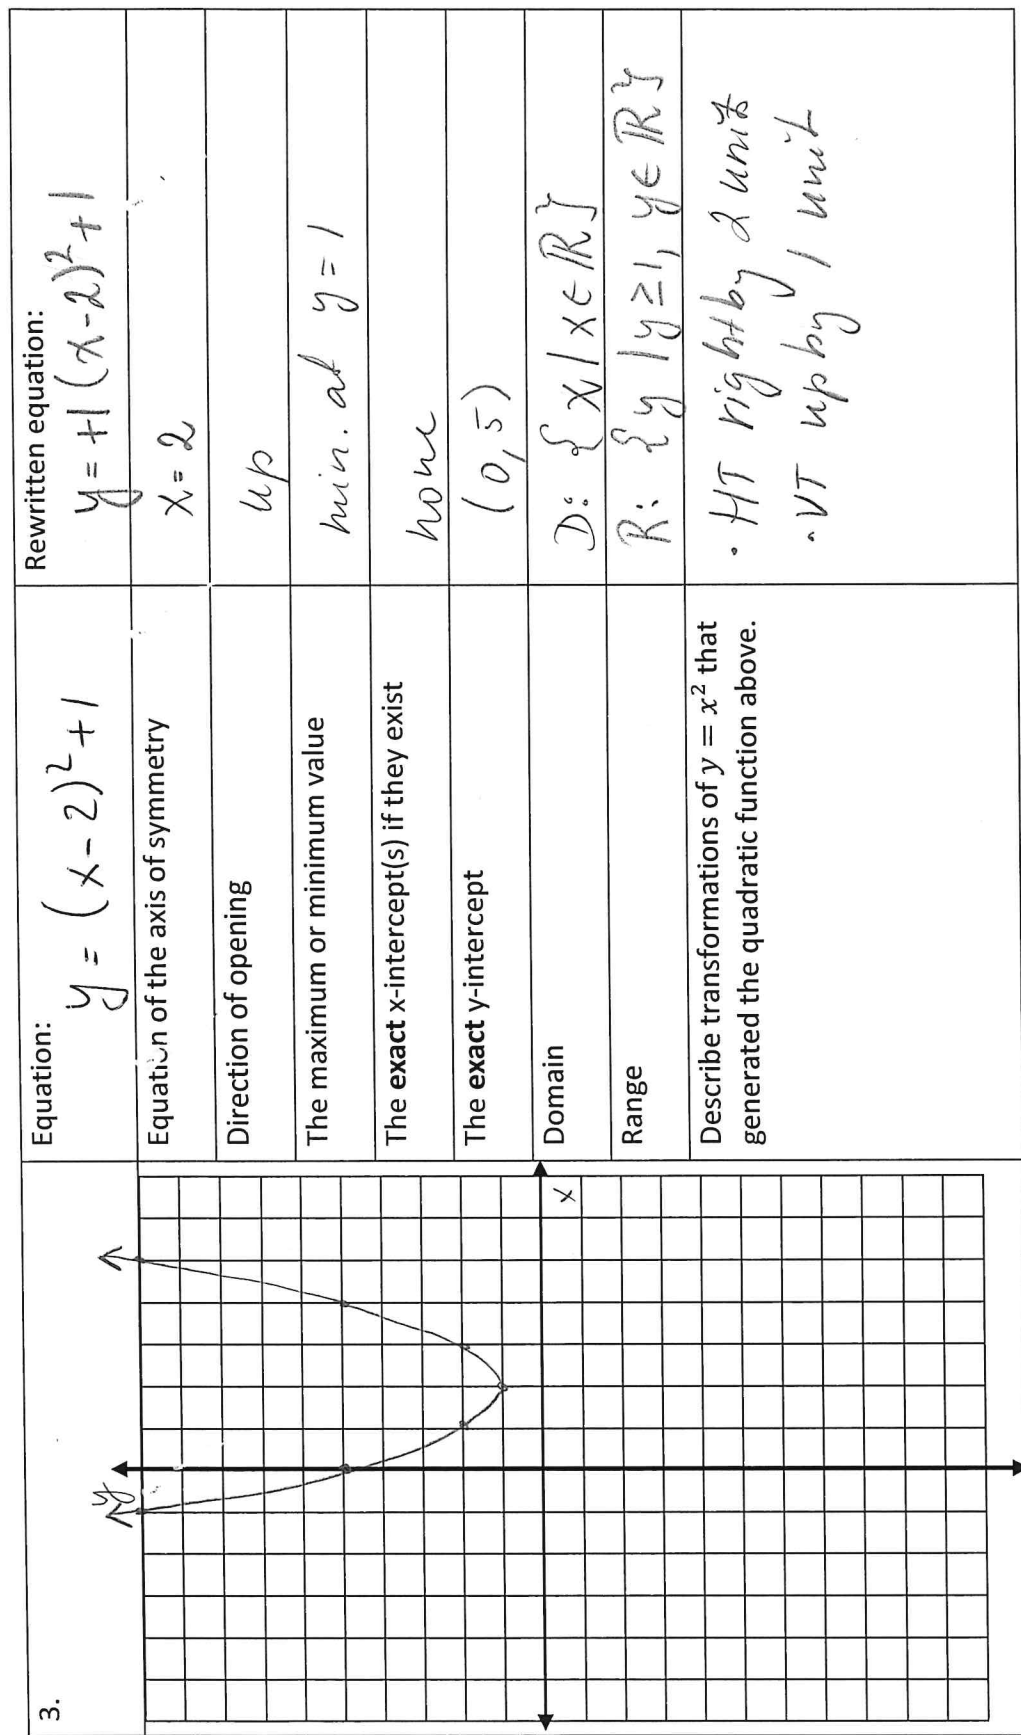 3.
y
x
Equation:
y = (x-2)² + 1
Rewritten equation:
y = +1(x-2)² + 1
Equation of the axis of symmetry
x = 2
Direction of opening
up
The maximum or minimum value
min. at y = 1
The exact x-intercept(s) if they exist
none
The exact y-intercept
(0, 5)
Domain
D: { x | x ∈ ℝ }
Range
R: { y | y ≥ 1, y ∈ ℝ }
Describe transformations of y = x² that
generated the quadratic function above.
• HT right by 2 units
• VT up by 1 unit